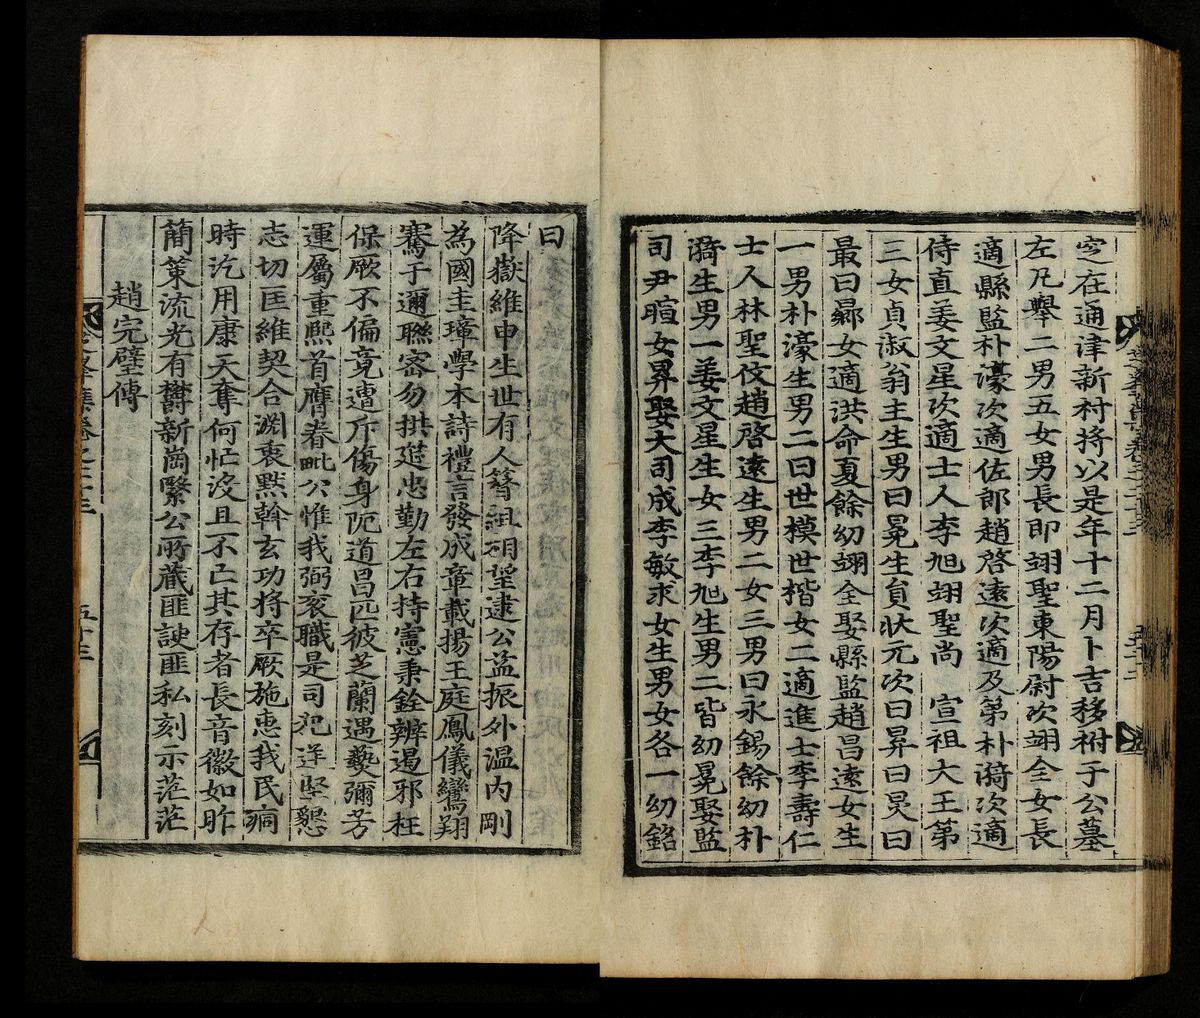 窆在通津新村將以是年十二月卜吉移祔于公墓
左凡擧二男五女男長卽翊聖東陽尉次翊全女長
適縣監朴濠次適佐郎趙啓遠次適及第朴漪次適
侍直姜文星次適士人李旭翊聖尚 宣祖大王第
三女貞淑翁主生男曰冕生員狀元次曰昇曰炅曰
最曰鼏女適洪命夏餘幼翊全娶縣監趙昌遠女生
一男朴濠生男二曰世模世楷女二適進士李壽仁
士人林聖伋趙啓遠生男二女三男曰永錫餘幼朴
漪生男一姜文星生女三李旭生男二皆幼冕娶監
司尹暄女昇娶大司成李敏求女生男女各一幼銘
曰
降嶽維申生世有人簪組相望逮公益振外溫內剛
為國圭璋學本詩禮言發成章載揚王庭鳳儀鸞翔
騫于邇聯密勿拱筵忠勤左右持憲秉銓辨遏邪枉
保厥不偏竟遭斥傷身阨道昌匹彼芝蘭遇爇彌芳
運屬重熙首膺眷毗公惟我弼袞職是司犯逆堅懇
志切匡維契合淵衷默斡玄功將卒厥施惠我民痌
時汔用康天奪何忙沒且不亡其存者長音徽如昨
簡策流光有欝新崗繄公所藏匪諛匪私刻示茫茫
趙完璧傳